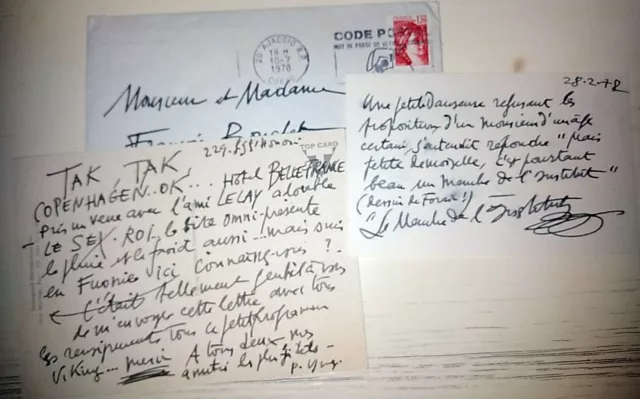 20 AJACCIO R.P.
19 H
10-7
1978
CODE POSTAL
MOT DE PASSE DE
1,20
Monsieur et Madame
229. Fg St Honoré
TOP CARD
TAK, TAK,
COPENHAGEN..OK... Hôtel BELLEFRANCE
pris un verre avec l'ami LELAY adorable
LE SEX. ROI. le bite omni-présente
la pluie et le froid aussi... mais suis
en Fuonie ici connaissez-vous ?
C'était tellement gentil à vous
de m'envoyer cette lettre avec tous
les renseignements tous ce petit programme
Viking... merci A tous deux mes
amitiés les plus fidèles -
28-2-78
Une petite danseuse refusant les
propositions d'un monsieur d'un âge
certain, s'entendit répondre "mais
petite demoiselle, c'est pourtant
beau un Membre de l'Institut"
(Dessin de Forain !)
"Le Membre de l'Institut"